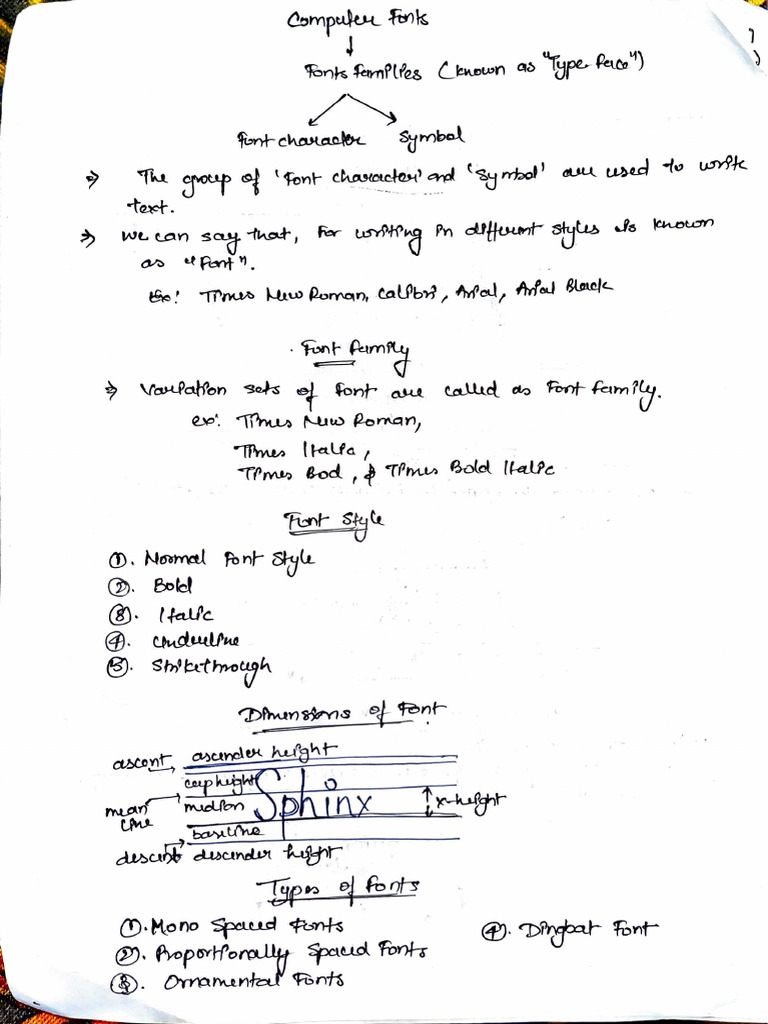 Computer Fonts
Fonts families (known as "Type face")
Font character Symbol
⇒ The group of 'Font character' and 'Symbol' are used to write
text.
⇒ we can say that, for writing in different styles is known
as "Font".
Ex: Times New Roman, Calibri, Arial, Arial Black
Font family
⇒ Variation sets of font are called as Font family.
ex: Times New Roman,
Times Italic,
Times Bod, & Times Bold Italic
Font Style
①. Normal Font Style
②. Bold
③. Italic
④. Underline
⑤. Strikethrough
Dimensions of Font
ascent → ascender height
cap height
mean line
median
Sphinx
x-height
baseline
descent descender height
Types of Fonts
①. Mono Spaced Fonts
④. Dingbat Font
②. Proportionally Spaced Fonts
③. Ornamental Fonts